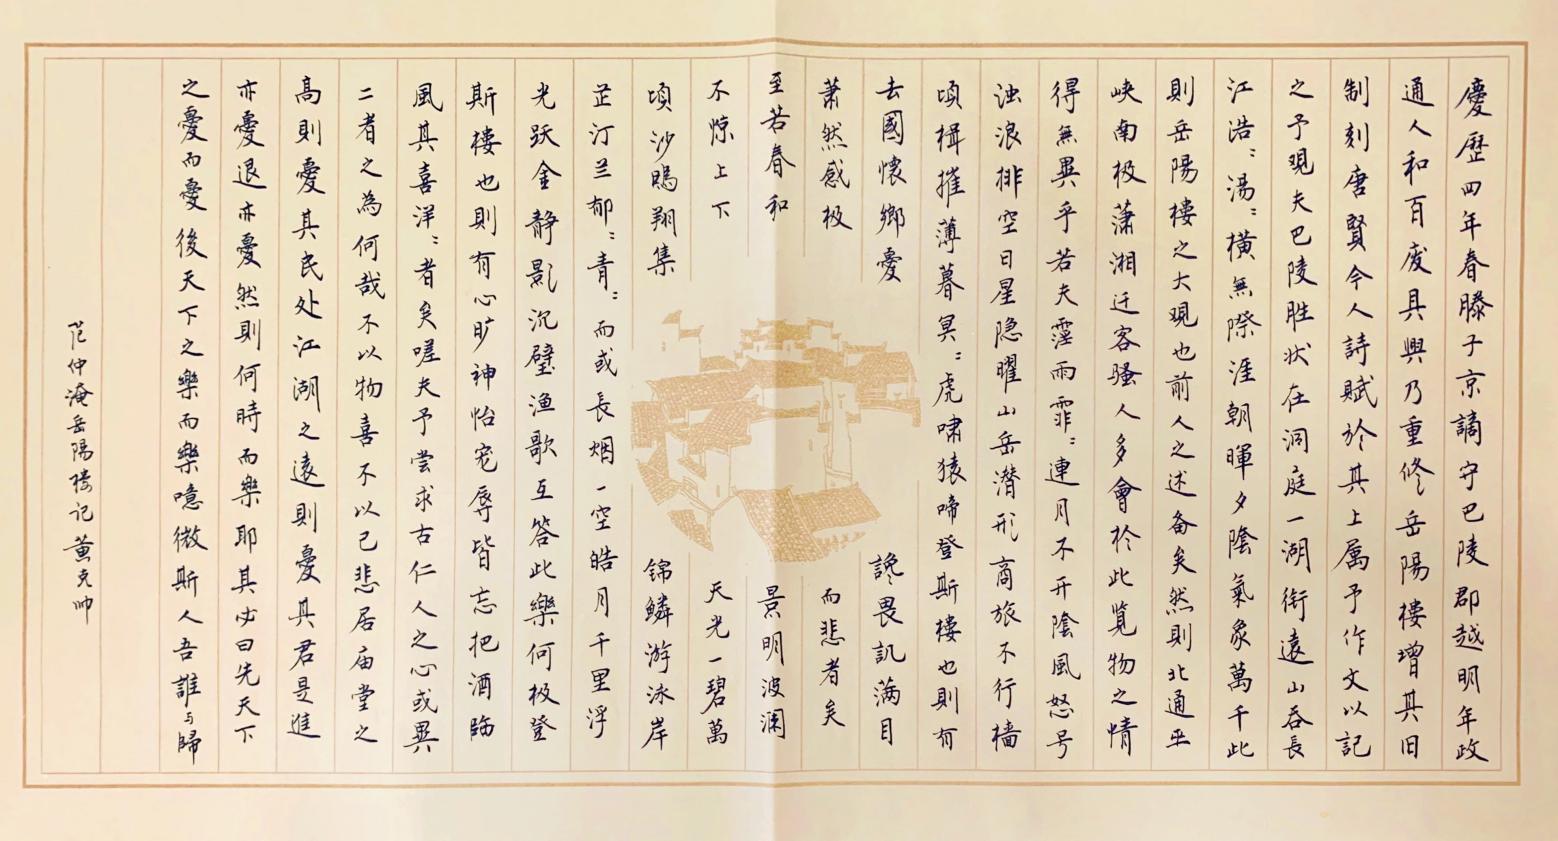 慶歷四年春滕子京謫守巴陵郡越明年政
通人和百废具興乃重修岳陽樓增其旧
制刻唐賢今人詩賦於其上属予作文以記
之予覌夫巴陵胜状在洞庭一湖衔遠山吞長
江浩〻湯〻横無際涯朝暉夕陰氣象萬千此
則岳陽樓之大覌也前人之述备矣然則北通巫
峡南极瀟湘迁客骚人多會於此覧物之情
得無異乎若夫霪雨霏〻連月不开陰風怒号
浊浪排空日星隐曜山岳潜形商旅不行樯
傾楫摧薄暮冥〻虎啸猿啼登斯樓也則有
去國懷鄉憂讒畏讥满目
萧然感极而悲者矣
至若春和景明波澜
不惊上下天光一碧萬
頃沙鷗翔集锦鳞游泳岸
芷汀兰郁〻青〻而或長烟一空皓月千里浮
光跃金静影沉璧渔歌互答此樂何极登
斯樓也則有心旷神怡宠辱皆忘把酒临
風其喜洋〻者矣嗟夫予尝求古仁人之心或異
二者之為何哉不以物喜不以己悲居庙堂之
高則憂其民处江湖之遠則憂其君是進
亦憂退亦憂然則何時而樂耶其必曰先天下
之憂而憂後天下之樂而樂噫微斯人吾誰与歸
范仲淹岳陽楼记黄克帅